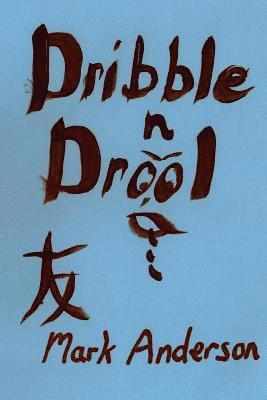 Dribble
n
Drool
友
Mark Anderson